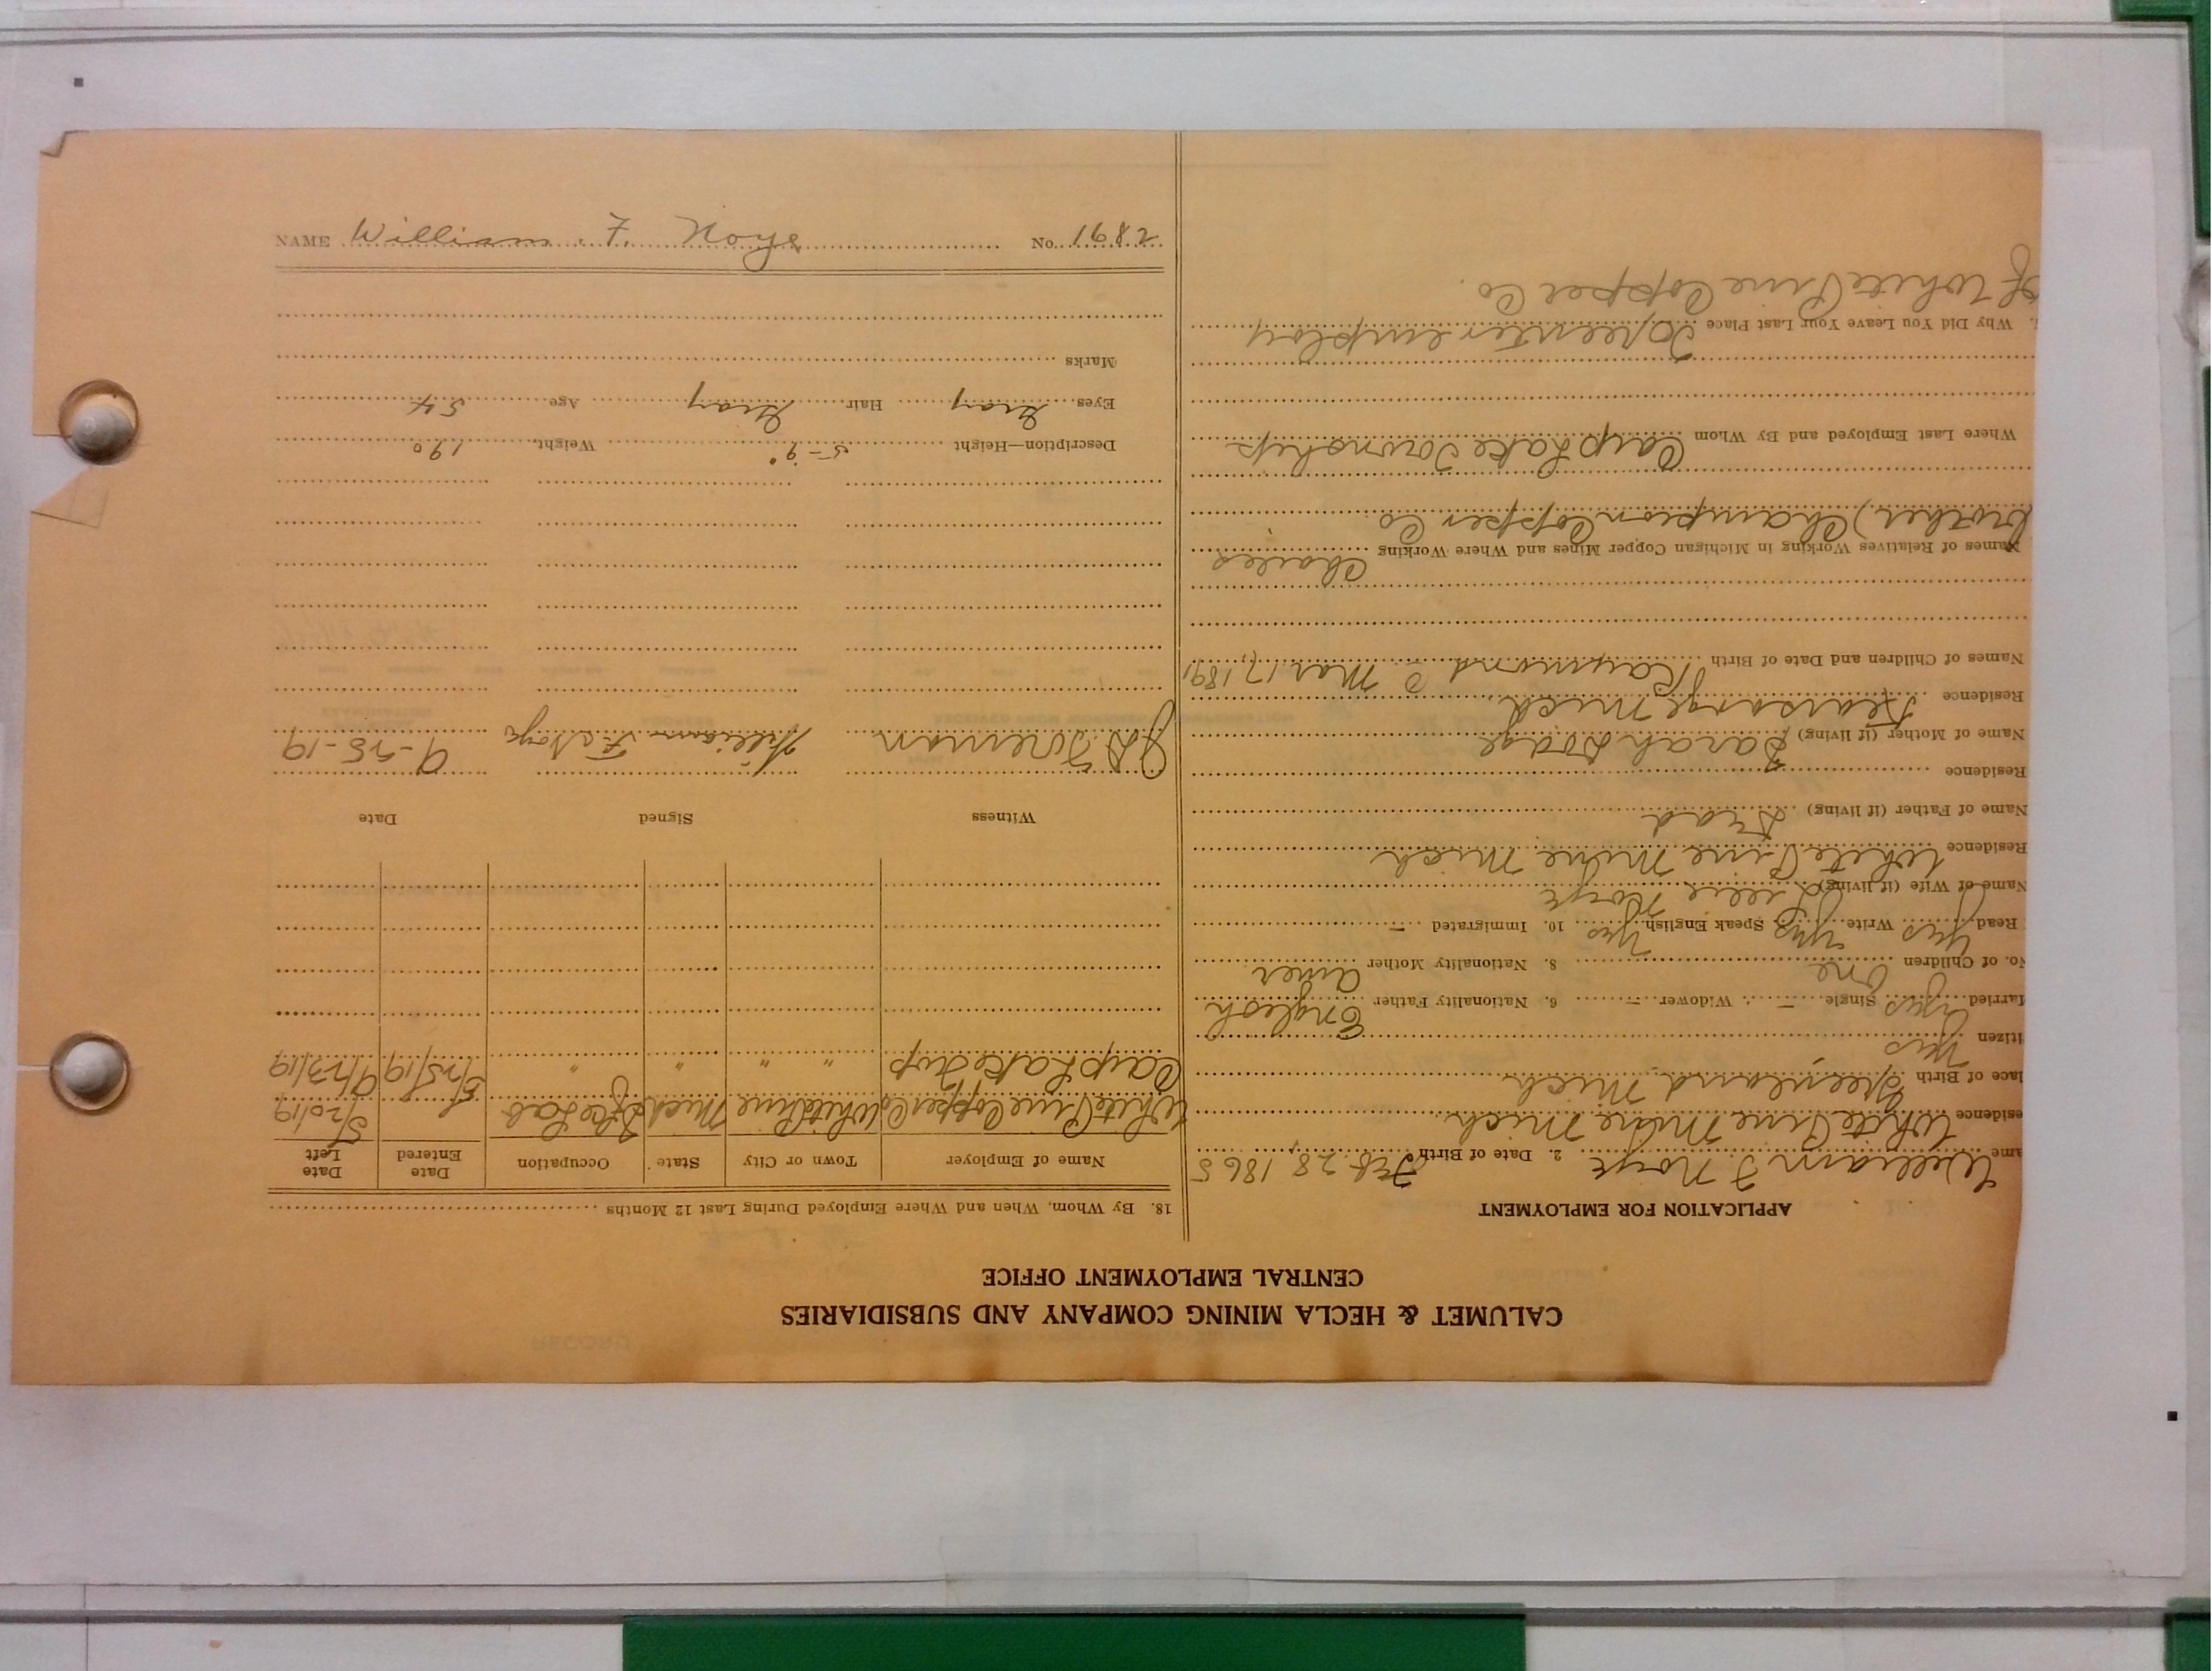 CALUMET & HECLA MINING COMPANY AND SUBSIDIARIES
CENTRAL EMPLOYMENT OFFICE
APPLICATION FOR EMPLOYMENT
ame William F Noye 2. Date of Birth Feb. 28 1865
esidence White Pine Mine Mich
lace of Birth Greenland Mich
itizen Yes
Married Yes Single — Widower — 6. Nationality Father English
No. of Children One 8. Nationality Mother Amer
Read Yes Write Yes Speak English Yes 10. Immigrated —
Name of Wife (if living) Noye
Residence White Pine Mine Mich
Name of Father (if living) Dead
Residence
Name of Mother (if living) Sarah Dodge
Residence Kearsarge Mich
Names of Children and Date of Birth Raymond Mar. 17, 1891
Names of Relatives Working in Michigan Copper Mines and Where Working Charles
brother) Champion Copper Co
Where Last Employed and By Whom Carp Lake Township
Why Did You Leave Your Last Place To reenter employ
of White Pine Copper Co.
18. By Whom, When and Where Employed During Last 12 Months
Name of Employer Town or City State Occupation Date Entered Date Left
White Pine Copper Co White Pine Mich Sfce Lab 5/20/19
Carp Lake Twp " " " " 5/25/19 9/23/19
Witness Signed Date
J D Foreman William F. Noye 9-25-19
Description—Height 5-9" Weight 190
Eyes Gray Hair Gray Age 54
Marks
NAME William F. Noye No. 1682